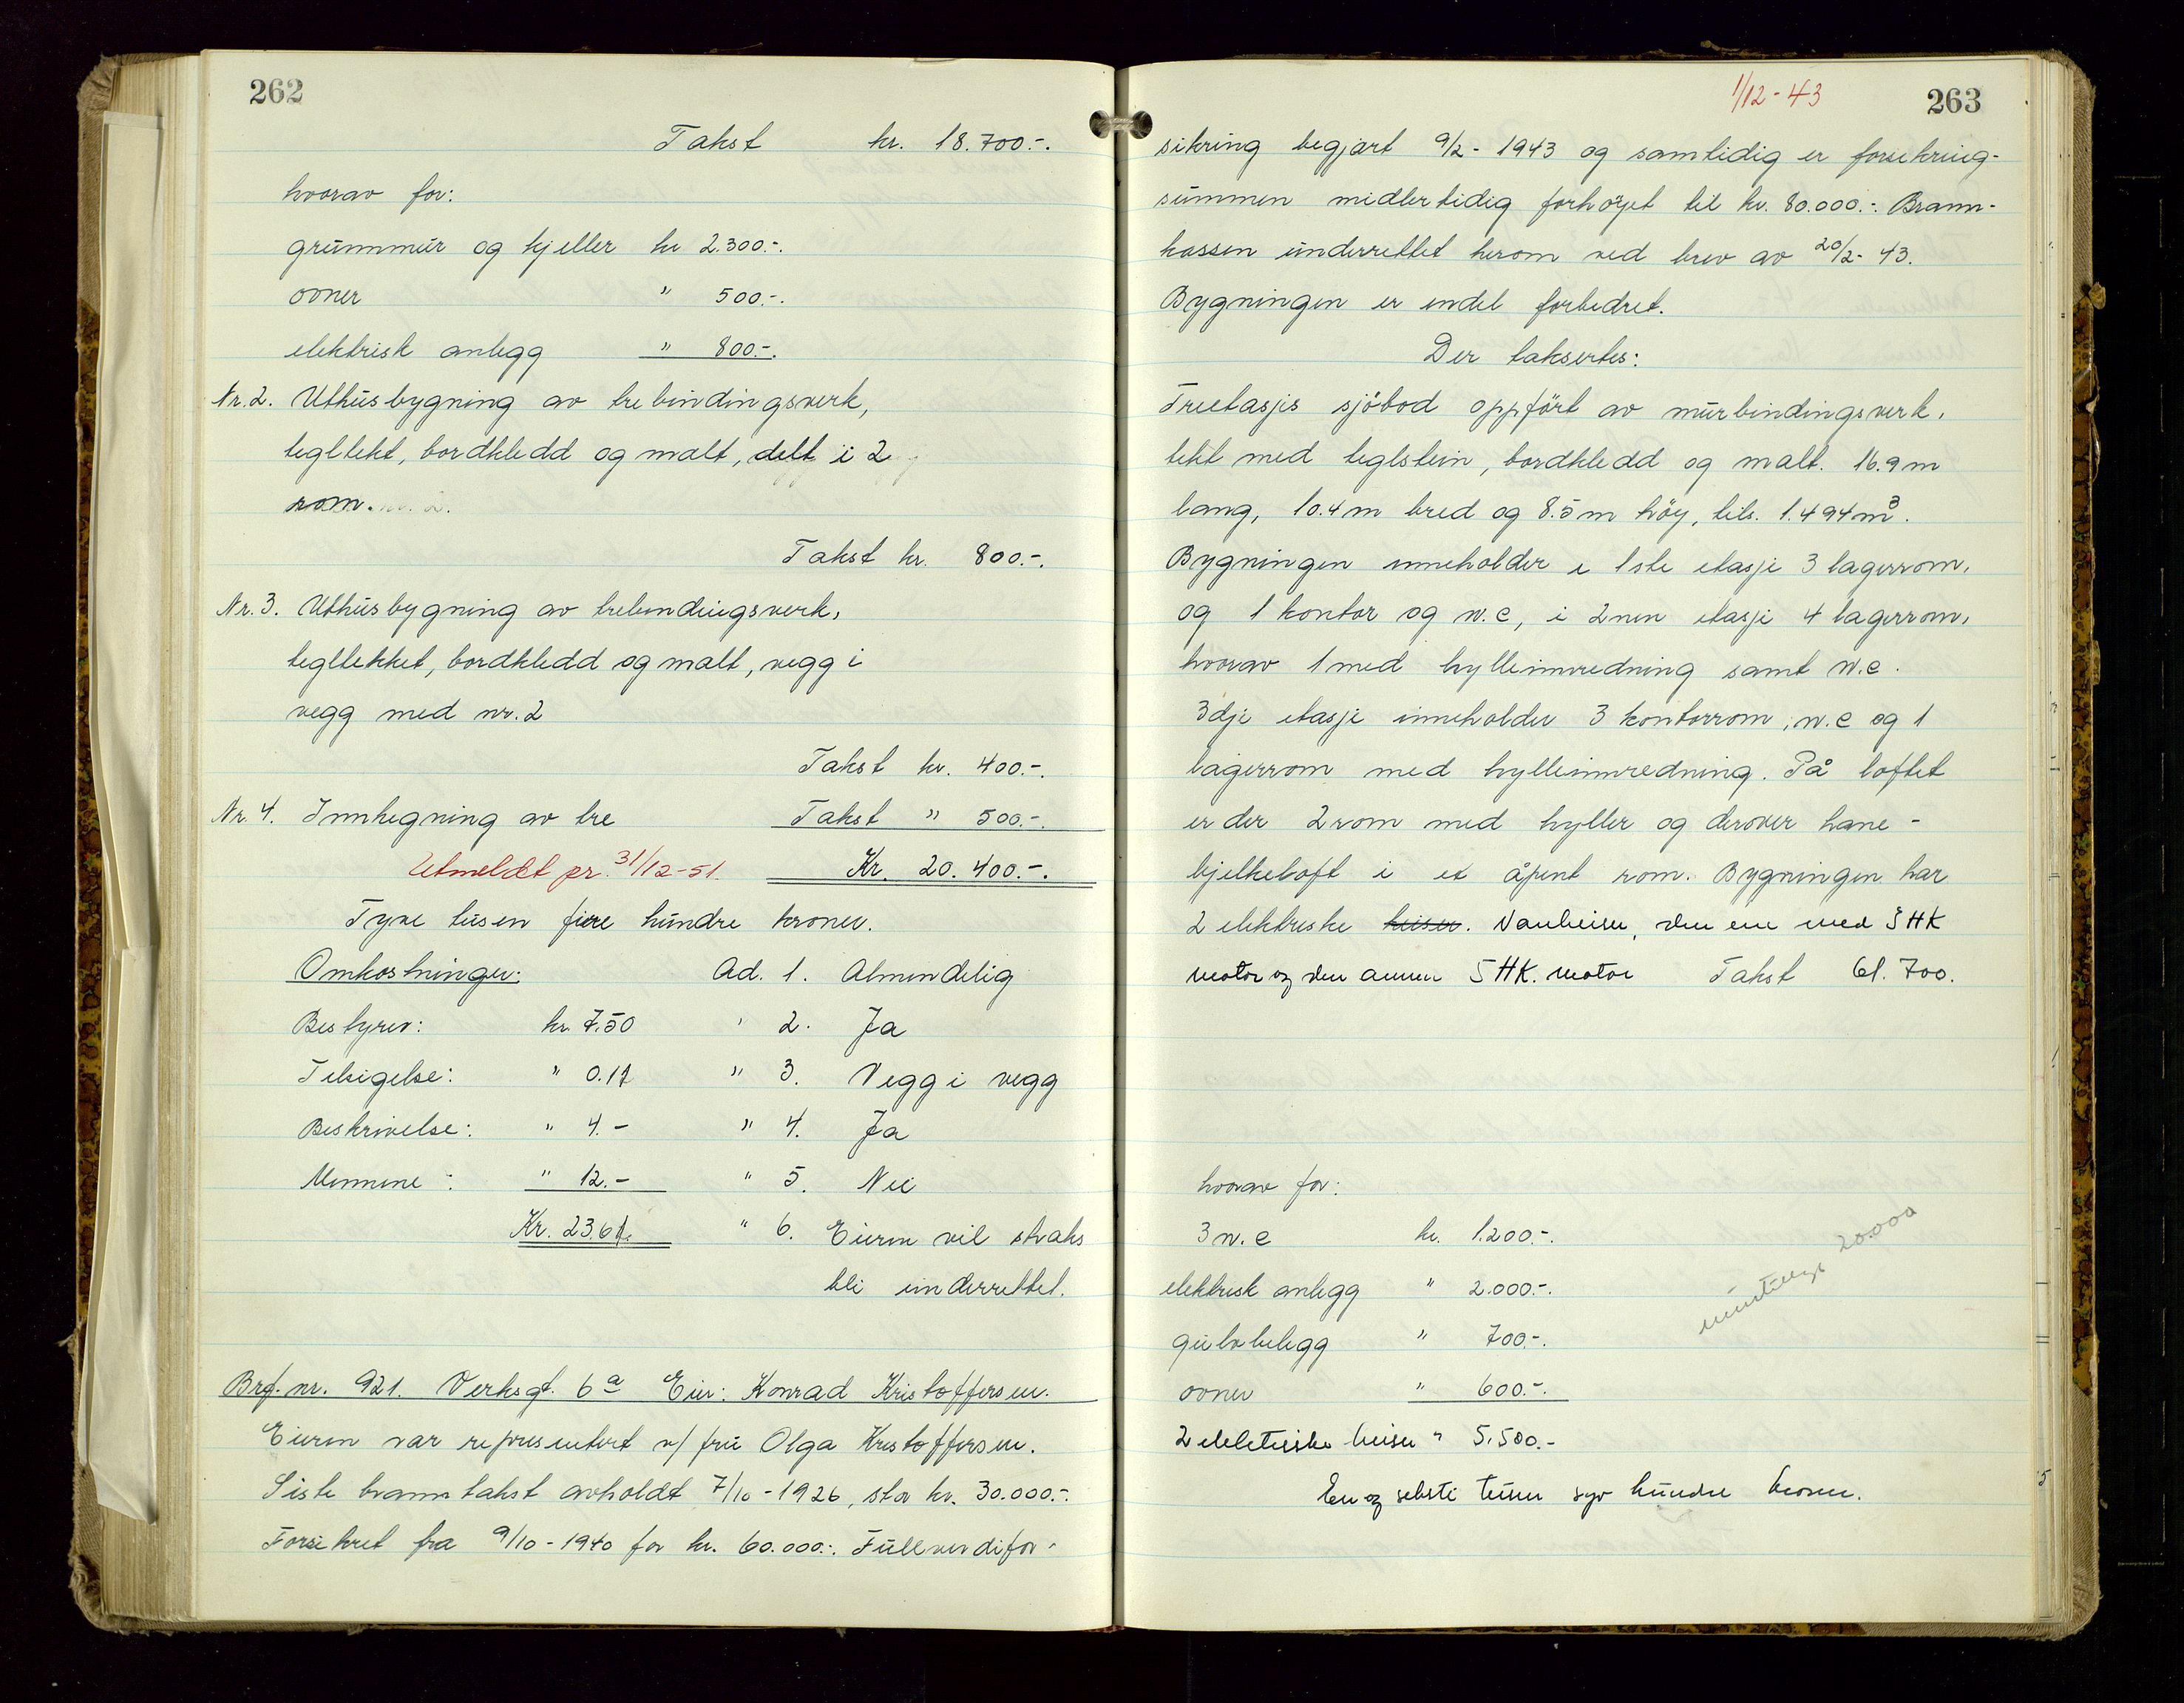 262
Takst kr. 18.700.-.
hvorav for:
grunnmur og kjeller kr 2.300.-.
ovner " 500.-.
elektrisk anlegg " 800.-.
Nr. 2. Uthusbygning av trebindingsverk,
tegltekt, bordkledd og malt, delt i 2
rom.
Takst kr. 800.-.
Nr. 3. Uthusbygning av trebindingsverk,
tegltekket, bordkledd og malt, vegg i
vegg med nr. 2
Takst kr. 400.-.
Nr. 4. Innhegning av tre Takst " 500.-.
Utmeldt pr. 31/12-51. Kr. 20.400.-.
Tyve tusen fire hundre kroner.
Omkostninger: Ad. 1. Almindelig
Bestyrer: kr. 7.50 " 2. Ja
Tilsigelse: " 0.17 " 3. Vegg i vegg
Beskrivelse: " 4.- " 4. Ja
Mennene: " 12.- " 5. Nei
Kr. 23.67. " 6. Eieren vil straks
bli underrettet.
Brf. nr. 921. Verksgt. 6a Eier: Konrad Kristoffersen.
Eieren var representert v/ fru Olga Kristoffersen.
Siste branntakst avholdt 7/10-1926, stor kr. 30.000.-.
Forsikret fra 9/10-1940 for kr. 60.000.-. Fullverdifor-
1/12-43
263
sikring begjært 9/2-1943 og samtidig er forsikring-
summen midlertidig forhöyet til kr. 80.000.-. Brann-
kassen underrettet herom ved brev av 20/2-43.
Bygningen er endel forbedret.
Der taksertes:
Treetasjes sjöbod oppfört av murbindingsverk,
tekt med teglstein, bordkledd og malt. 16.9 m
lang, 10.4 m bred og 8.5 m höy, tils. 1.494 m3.
Bygningen inneholder i 1ste etasje 3 lagerrom,
og 1 kontor og w.c, i 2nen etasje 4 lagerrom,
hvorav 1 med hylleinnredning samt w.c.
3dje etasje inneholder 3 kontorrom, w.c og 1
lagerrom med hylleinnredning. På loftet
er der 2 rom med hyller og derover hane-
bjelkeloft i et åpent rom. Bygningen har
2 elektriske heiser. Vareheiser, den ene med 3 HK
motor og den annen 5 HK. motor Takst 61.700.
hvorav for:
3 w.c kr. 1.200.-.
elektrisk anlegg " 2.000.-.
gulvbelegg " 700.-.
ovner " 600.-.
2 elektriske heiser " 5.500.-
20.000
En og seksti tusen syv hundre kroner.